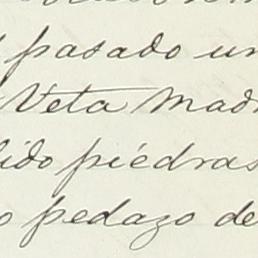 pasado un
Veta Mad
ido piédras
o pedazo de